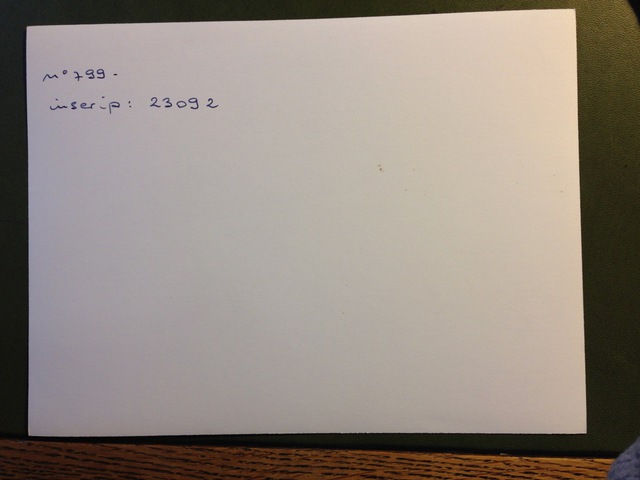 n° 799.
inscrip: 23092